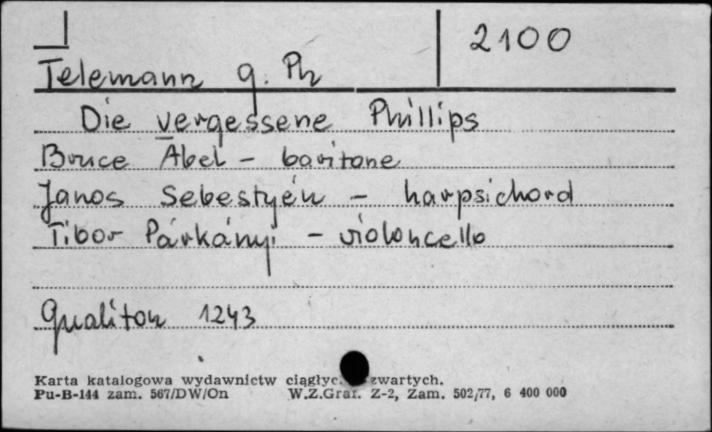 2100
Telemann g. Ph
Die vergessene Phillips
Bruce Abel - baritone
Janos Sebestyén - harpsichord
Tibor Párkányi - violoncello
Qualiton 1243
Karta katalogowa wydawnictw ciągłyc zwartych.
Pu-B-144 zam. 567/DW/On W.Z.Graf. Z-2, Zam. 502/77, 6 400 000